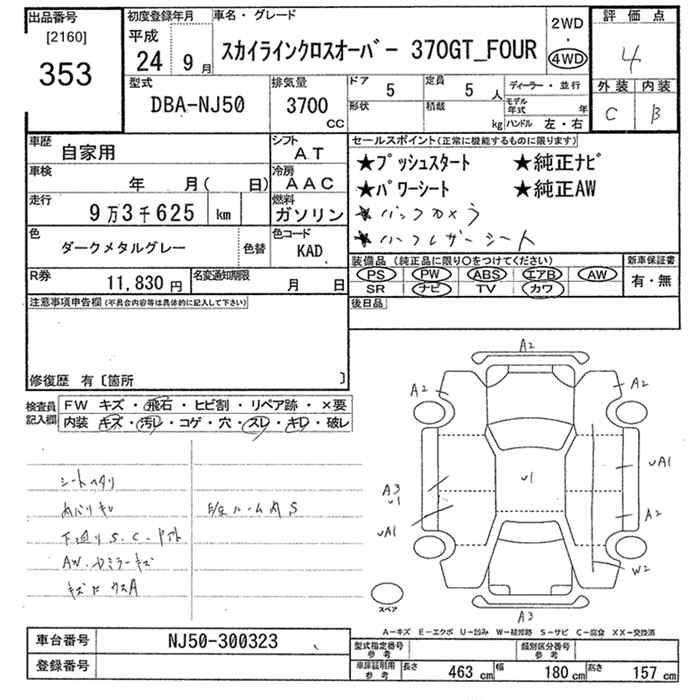 出品番号
[2160]
353
初度登録年月
平成
24 9月
車名・グレード
スカイラインクロスオーバー 370GT_FOUR
2WD
・
4WD
評価点
4
外装 内装
C B
型式
DBA-NJ50
排気量
3700
CC
ドア
5
定員
5 人
形状
積載
kg
ディーラー・並行
モデル年式 年
ハンドル 左・右
車歴
自家用
シフト
AT
車検
年 月( 日)
冷房
AAC
走行
9万3千625 km
燃料
ガソリン
色
ダークメタルグレー
色替
色コード
KAD
R券
11,830 円
名変通知期限
月 日
セールスポイント(正常に機能するものに限ります)
★プッシュスタート ★純正ナビ
★パワーシート ★純正AW
★バックカメラ
★ハーフレザーシート
装備品 (純正品に限り○をつけてください)
PS PW ABS エアB AW
SR ナビ TV カワ
新車保証書
有・無
注意事項申告欄(不具合内容等は具体的に記入して下さい)
後日品
修復歴 有〔箇所 〕
検査員記入欄
FW キズ・飛石・ヒビ割・リペア跡・×要
内装 キズ・汚レ・コゲ・穴・スレ・キレ・破レ
シートヘタリ
下廻りS.C.
AW.ドミラーキズ
A2
A2
A2
U1
A3
U1
UA1
UA1
A2
W2
A3
スペア
A−キズ E−エクボ U−凹み W−補修跡 S−サビ C−腐食 XX−交換済
車台番号
NJ50-300323
登録番号
型式指定番号
参考
類別区分番号
参考
車庫証明用
参考
長さ 463 cm 幅 180 cm 高さ 157 cm